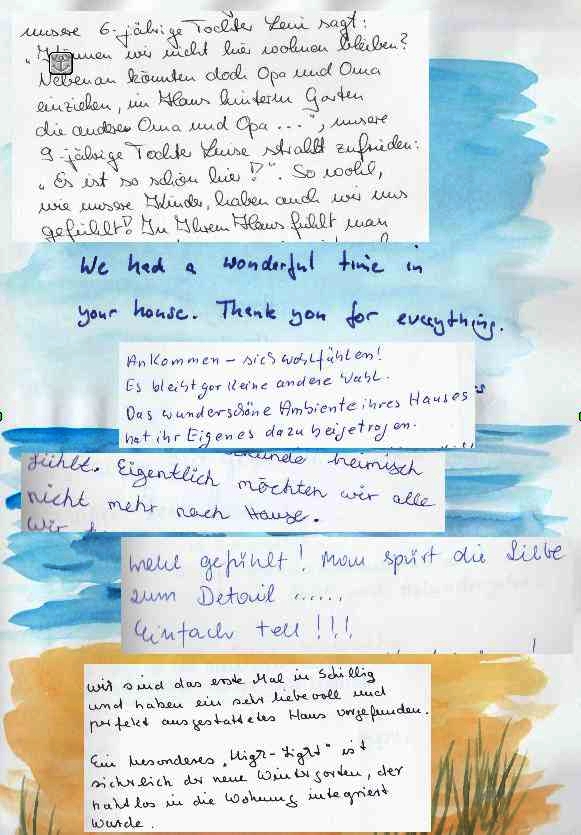 unsere 6-jährige Tochter Leni sagt:
"Können wir nicht hier wohnen bleiben?
Nebenan könnten doch Opa und Oma
einziehen, im Haus hinterm Garten
die andere Oma und Opa ...", unsere
9-jährige Tochter Luise strahlt zufrieden:
"Es ist so schön hier!". So wohl,
wie unsere Kinder, haben auch wir uns
gefühlt! In Ihrem Haus fühlt man
We had a wonderful time in
your house. Thank you for everything.
Ankommen - sich wohlfühlen!
Es bleibt gar keine andere Wahl.
Das wunderschöne Ambiente ihres Hauses
hat ihr Eigenes dazu beigetragen.
fühlt. Eigentlich heimisch
möchten wir alle
nicht mehr nach Hause.
Wir
wohl gefühlt! Man spürt die Liebe
zum Detail ......
Einfach toll!!!
Wir sind das erste Mal in Schillig
und haben ein sehr liebevoll und
perfekt ausgestattetes Haus vorgefunden.
Ein besonderes "High-Light" ist
sicherlich der neue Wintergarten, der
nahtlos in die Wohnung integriert
wurde.